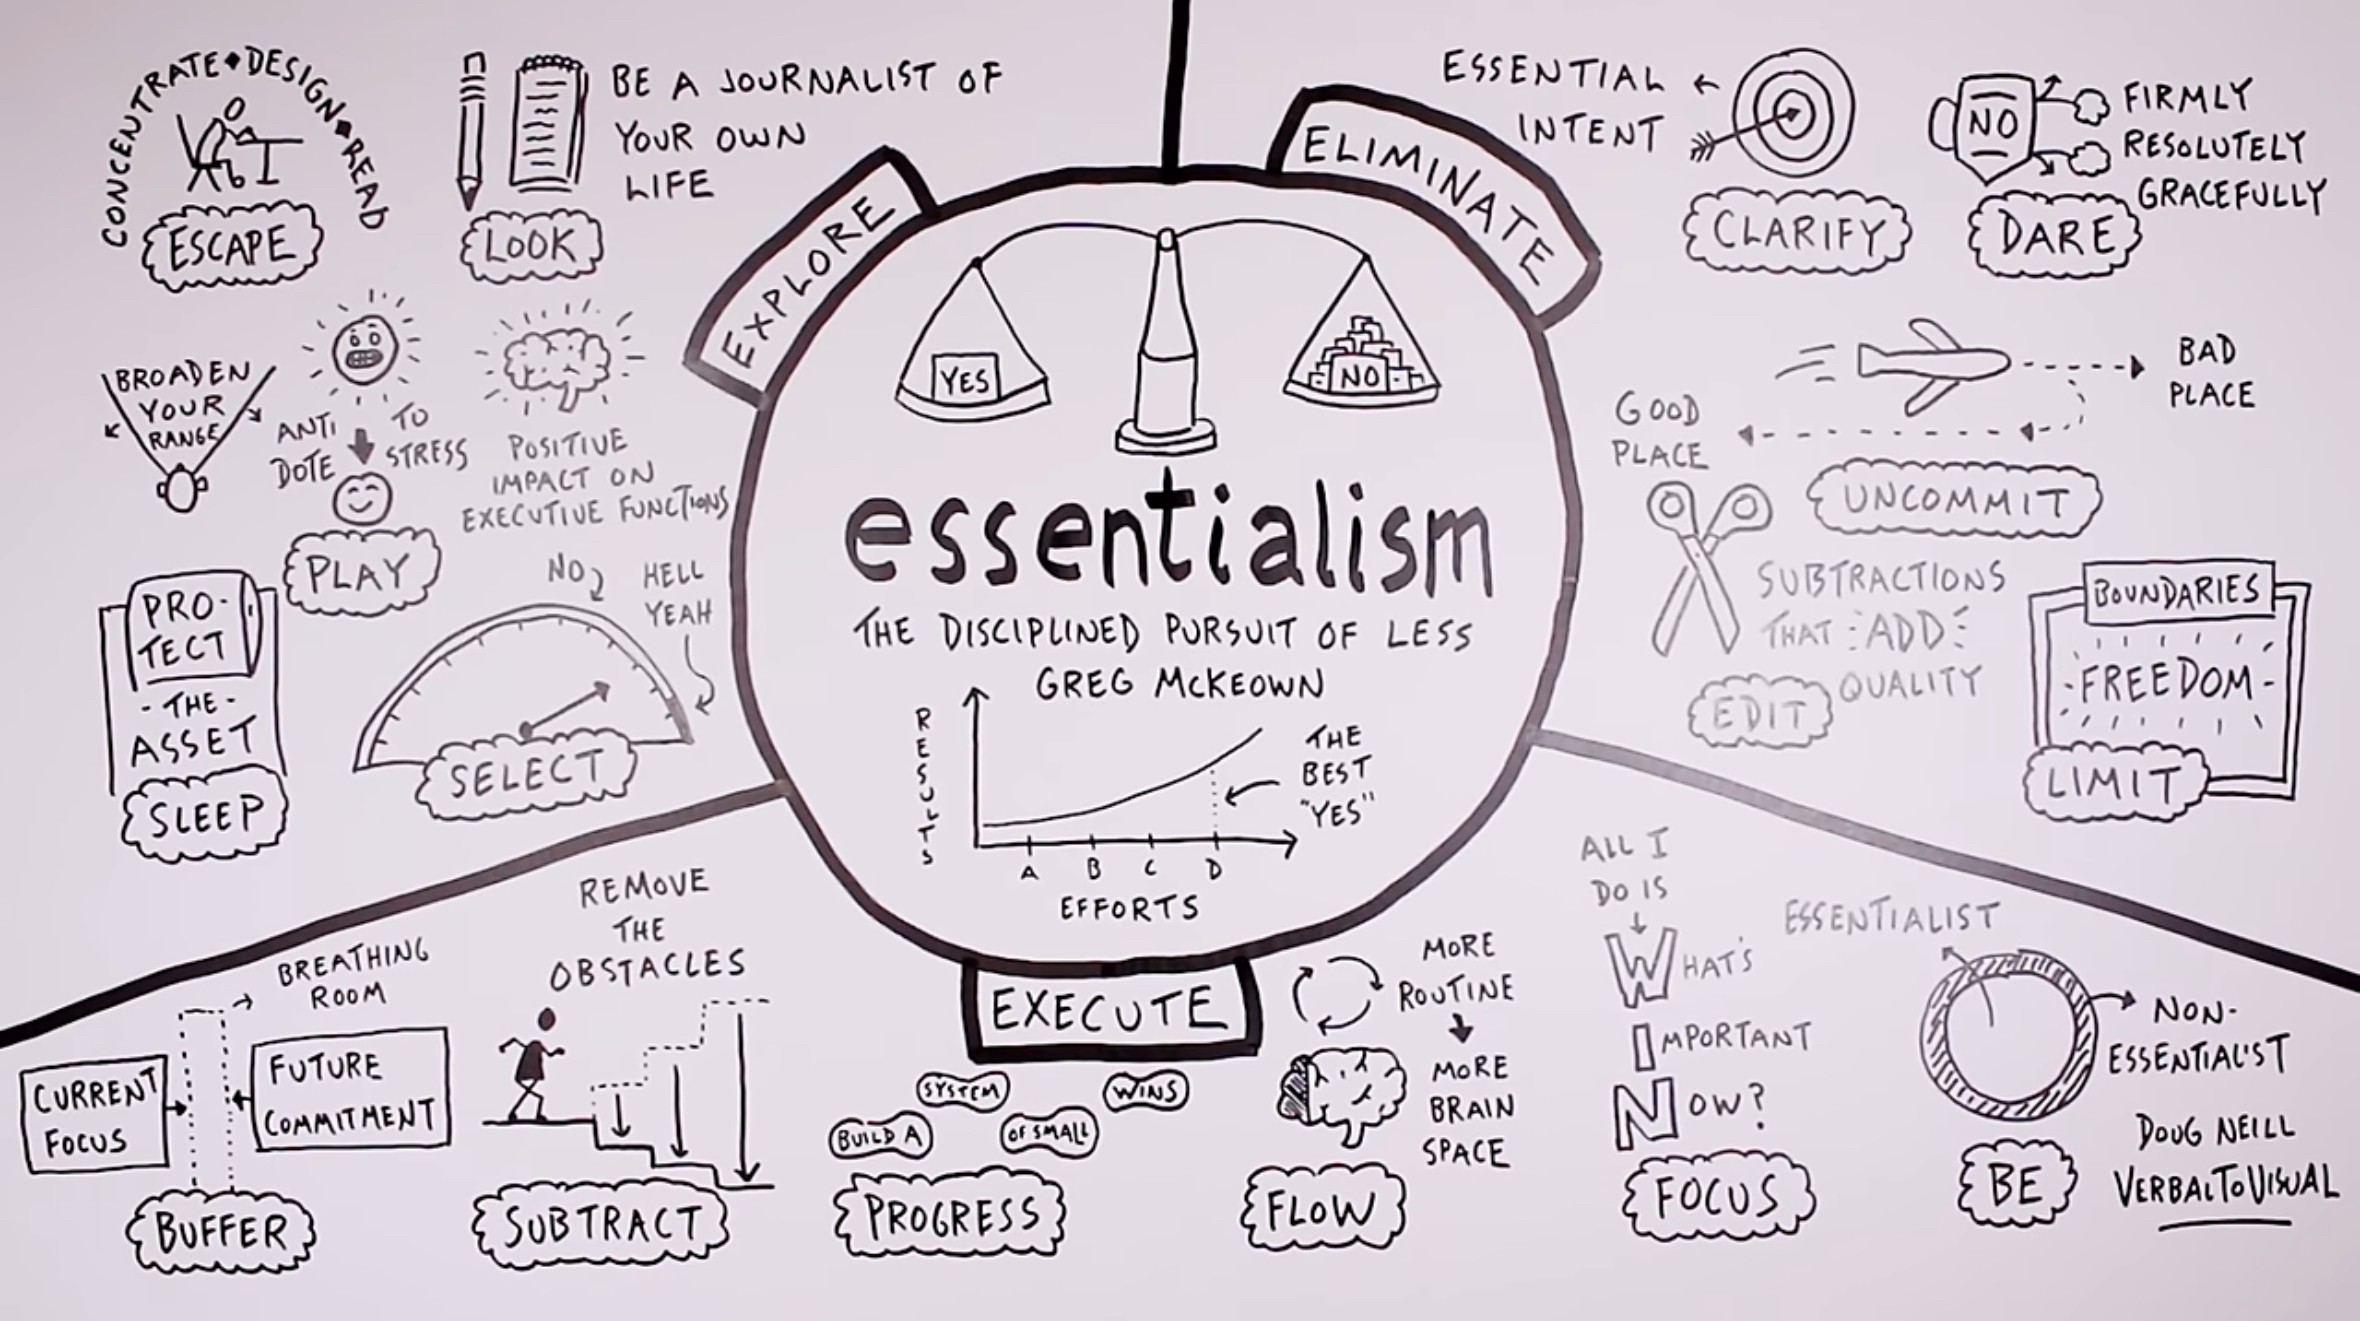 CONCENTRATE◆DESIGN◆READ
ESCAPE
BE A JOURNALIST OF
YOUR OWN
LIFE
LOOK
BROADEN
YOUR
RANGE
ANTI
DOTE
TO
STRESS
PLAY
POSITIVE
IMPACT ON
EXECUTIVE FUNCTIONS
PRO-
TECT
- THE -
ASSET
SLEEP
NO
HELL
YEAH
SELECT
EXPLORE
ELIMINATE
YES
NO
essentialism
THE DISCIPLINED PURSUIT OF LESS
GREG McKEOWN
RESULTS
THE
BEST
"YES"
A B C D
EFFORTS
EXECUTE
ESSENTIAL
INTENT
CLARIFY
NO
FIRMLY
RESOLUTELY
GRACEFULLY
DARE
BAD
PLACE
GOOD
PLACE
UNCOMMIT
SUBTRACTIONS
THAT ADD
QUALITY
EDIT
BOUNDARIES
FREEDOM
LIMIT
BREATHING
ROOM
CURRENT
FOCUS
FUTURE
COMMITMENT
BUFFER
REMOVE
THE
OBSTACLES
SUBTRACT
BUILD A
SYSTEM
OF SMALL
WINS
PROGRESS
MORE
ROUTINE
MORE
BRAIN
SPACE
FLOW
ALL I
DO IS
WHAT'S
IMPORTANT
NOW?
FOCUS
ESSENTIALIST
NON-
ESSENTIAL'ST
BE
DOUG NEILL
VERBALTOVISUAL